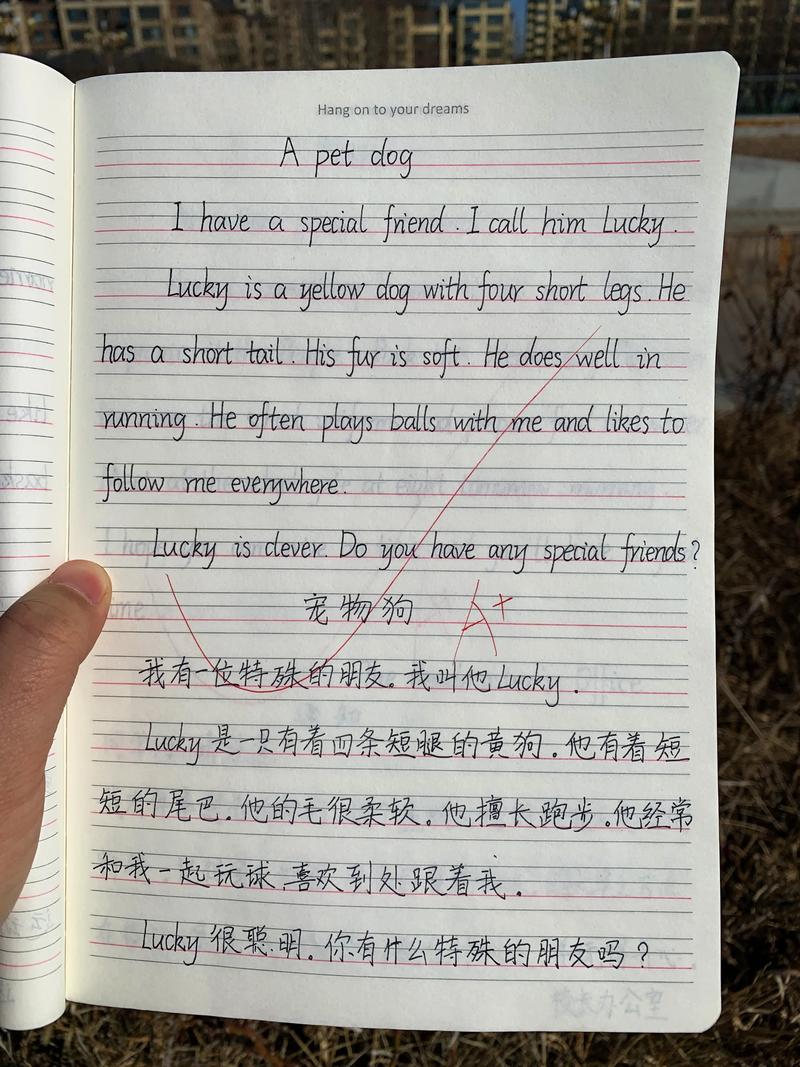 Hang on to your dreams
A pet dog
I have a special friend. I call him Lucky.
Lucky is a yellow dog with four short legs. He
has a short tail. His fur is soft. He does well in
running. He often plays balls with me and likes to
follow me everywhere.
Lucky is clever. Do you have any special friends?
宠物狗
A+
我有一位特殊的朋友。我叫他Lucky.
Lucky是一只有着四条短腿的黄狗.他有着短
短的尾巴.他的毛很柔软.他擅长跑步.他经常
和我一起玩球 喜欢到处跟着我.
Lucky很聪明。你有什么特殊的朋友吗?